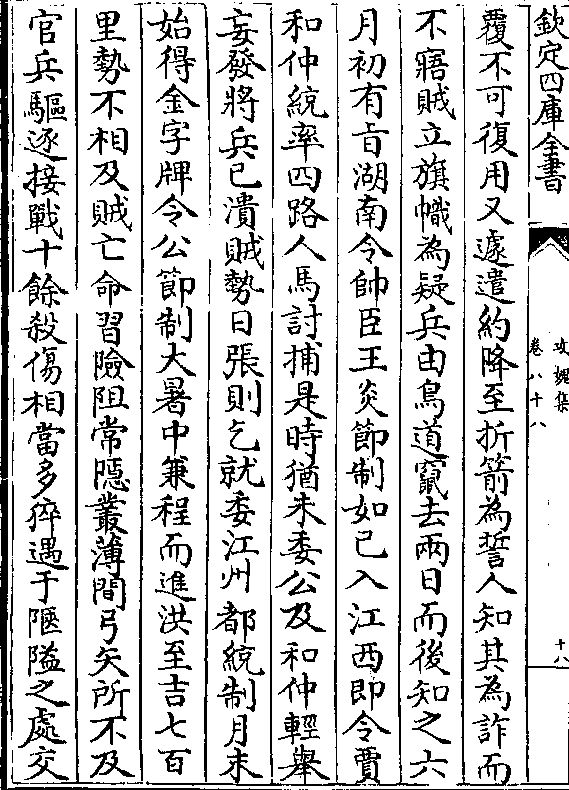 欽定四庫全書
攻媿集
卷八十八
十八
覆不可復用又遽遣約降至折箭為誓人知其為詐而
不寤賊立旗幟為疑兵由鳥道竄去兩日而後知之六
月初有㫖湖南令帥臣王炎節制如已入江西即令賈
和仲統率四路人馬討捕是時猶未委公及和仲輕舉
妄發將兵已潰賊勢日張則乞就委江州都統制月末
始得金字牌令公節制大暑中兼程而進洪至吉七百
里勢不相及賊亡命習險阻常隱叢薄間弓矢所不及
官兵驅逐接戰十餘殺傷相當多猝遇于隁隘之處交